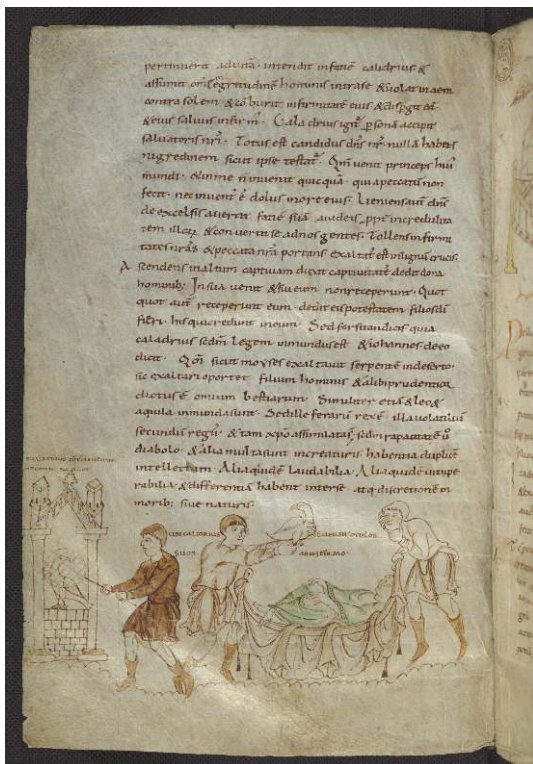 pertinuerit ad uitā · intendit in faciē caladrius &
assumit om̄s ęgritudinē hominis intra se & uolat in aerē
contra solem · & cōburit infirmitatē eius & disp̱git eā
& eius saluus infirm̄ · Caladrius igit̄ psonā accipit
saluatoris nr̄i · Totus est candidus dn̄s nr̄ nullā habens
nigredinem sicut ipse testat̄ · Qm̄ uenit princeps huī
mundi · & in me n inuenit quicquā · qui a peccatū non
fecit · nec inuent ē dolus in ore eius · Ueniens aut dn̄s
de excelsis auertit faciē suā a iudeis ppt incredulita
tem illoꝝ & conuertit se ad nos gentes · Tollens infirmi
tates nr̄as & peccata nr̄a portans exaltat est in lignū crucis ·
Ascendens in altum captiuam duxit captiuitatē dedit dona
hominib; In sua uenit & sui eum non receperunt · Quot
quot aut receperunt eum · dedit eis potestatem filios di
fieri · his qui credunt in eum · Sed forsitan dicas quia
caladrius scdm legem inmundus est · & iohannes de eo
dicit · Qm̄ sicut moyses exaltauit serpentē in deserto
sic exaltari oportet filium hominis · & alibi prudentior
dictus ē omnium bestiarum · Similiter etiā & leo &
aquila inmunda sunt · Sed ille ferarū rex ē illa uolatiliū
secundū regnū · & tam xp̄o assimilatꝰ sedm rapacitatē ū
diabolo · & alia multa sunt in creaturis habentia duplicē
intellectum · Alia quidē laudabilia · Alia quidē uitupe
rabilia · & differentiā habent inter se atq; discretionē in
morib; siue naturis ·